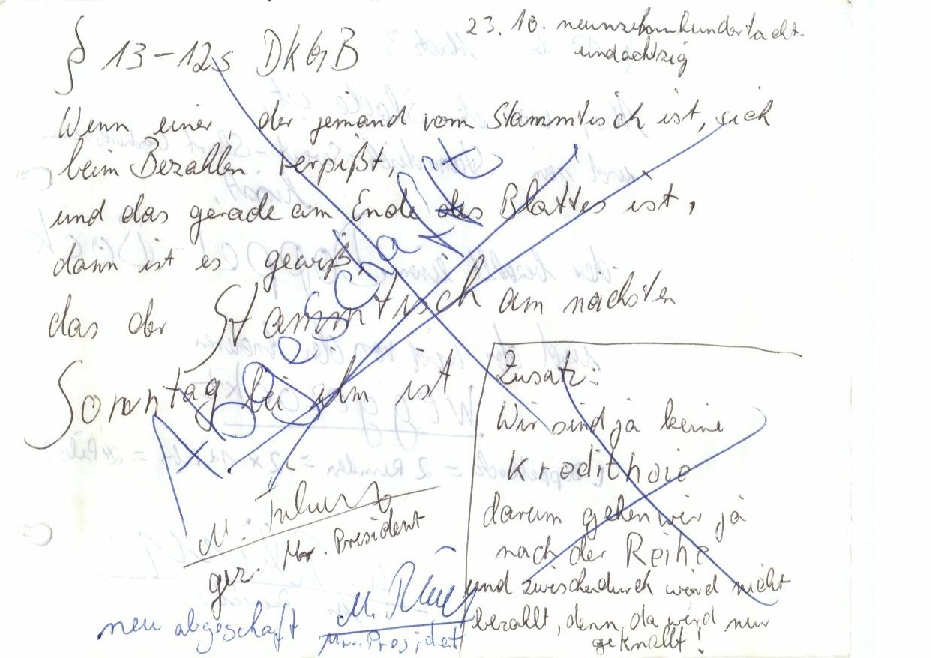 23. 10. neunzehnhundertacht-
undachtzig
§ 13-12s DKGB
Wenn einer, der jemand vom Stammtisch ist, sich
beim Bezahlen verpißt,
und das gerade am Ende des Blattes ist,
dann ist es gewiß,
das der Stammtisch am nächsten
Sonntag bei ihm ist
Abgeschafft
Mr. President
gez.
neu abgeschaft
Mr. President
Zusatz:
Wir sind ja keine
Kredithaie
darum gehen wir ja
nach der Reihe
und zwischedurch werd nicht
bezallt, denn da wird nur
geknallt!